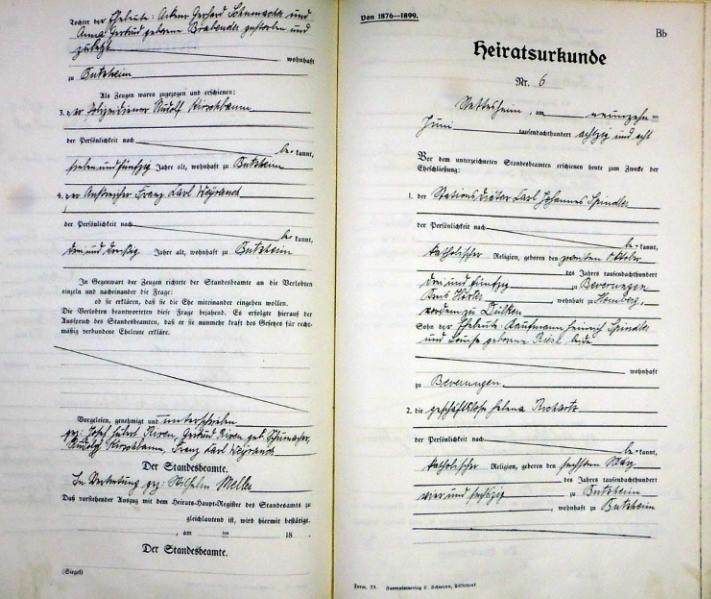 Tochter der Eheleute: Ackerer Gerhard Schumacher und
Anna Gertrud geborene Brabender gestorben und
zuletzt wohnhaft
zu Butzheim
Als Zeugen waren zugezogen und erschienen:
3. der Polizeidiener Rudolf Kirschbaum
der Persönlichkeit nach
be kannt,
sieben und fünfzig Jahre alt, wohnhaft zu Butzheim
4. der Anstreicher Franz Carl Weyrand
der Persönlichkeit nach
be kannt,
drei und dreißig Jahre alt, wohnhaft zu Butzheim
In Gegenwart der Zeugen richtete der Standesbeamte an die Verlobten
einzeln und nacheinander die Frage:
ob sie erklären, daß sie die Ehe miteinander eingehen wollen.
Die Verlobten beantworteten diese Frage bejahend. Es erfolgte hierauf der
Ausspruch des Standesbeamten, daß er sie nunmehr kraft des Gesetzes für recht-
mäßig verbundene Eheleute erkläre.
Vorgelesen, genehmigt und unterschrieben
gez: Josef Hubert Kivon, Gertrud Kivon geb. Schumacher,
Rudolf Kirschbaum, Franz Carl Weyrand
Der Standesbeamte.
In Vertretung gez: Wilhelm Meller
Daß vorstehender Auszug mit dem Heirats-Haupt-Register des Standesamts zu
gleichlautend ist, wird hiermit bestätigt.
, am ten 18 .
Der Standesbeamte.
(Siegel)
Von 1876—1899.
Bb
Heiratsurkunde
Nr. 6
Nettesheim, am neunzehn-
Juni tausendachthundert achtzig und acht
Vor dem unterzeichneten Standesbeamten erschienen heute zum Zwecke der
Eheschließung:
1. der Stations Diätar Carl Johannes Spindler
der Persönlichkeit nach
be- kannt,
katholischer Religion, geboren den zweiten Oktober
des Jahres tausendachthundert
drei und fünfzig zu Beverungen
Kreis Höxter wohnhaft zu Homberg,
vordem zu Dülken
Sohn der Eheleute: Kaufmann Heinrich Spindler
und Louise geborene beide
wohnhaft
zu Beverungen
2. die geschäftslose Helena Richartz
der Persönlichkeit nach
be- kannt,
katholischer Religion, geboren den sechsten März
des Jahres tausendachthundert
vier und sechzig zu Butzheim
, wohnhaft zu Butzheim
Form. 77. Formularverlag L. Schwann, Düsseldorf.